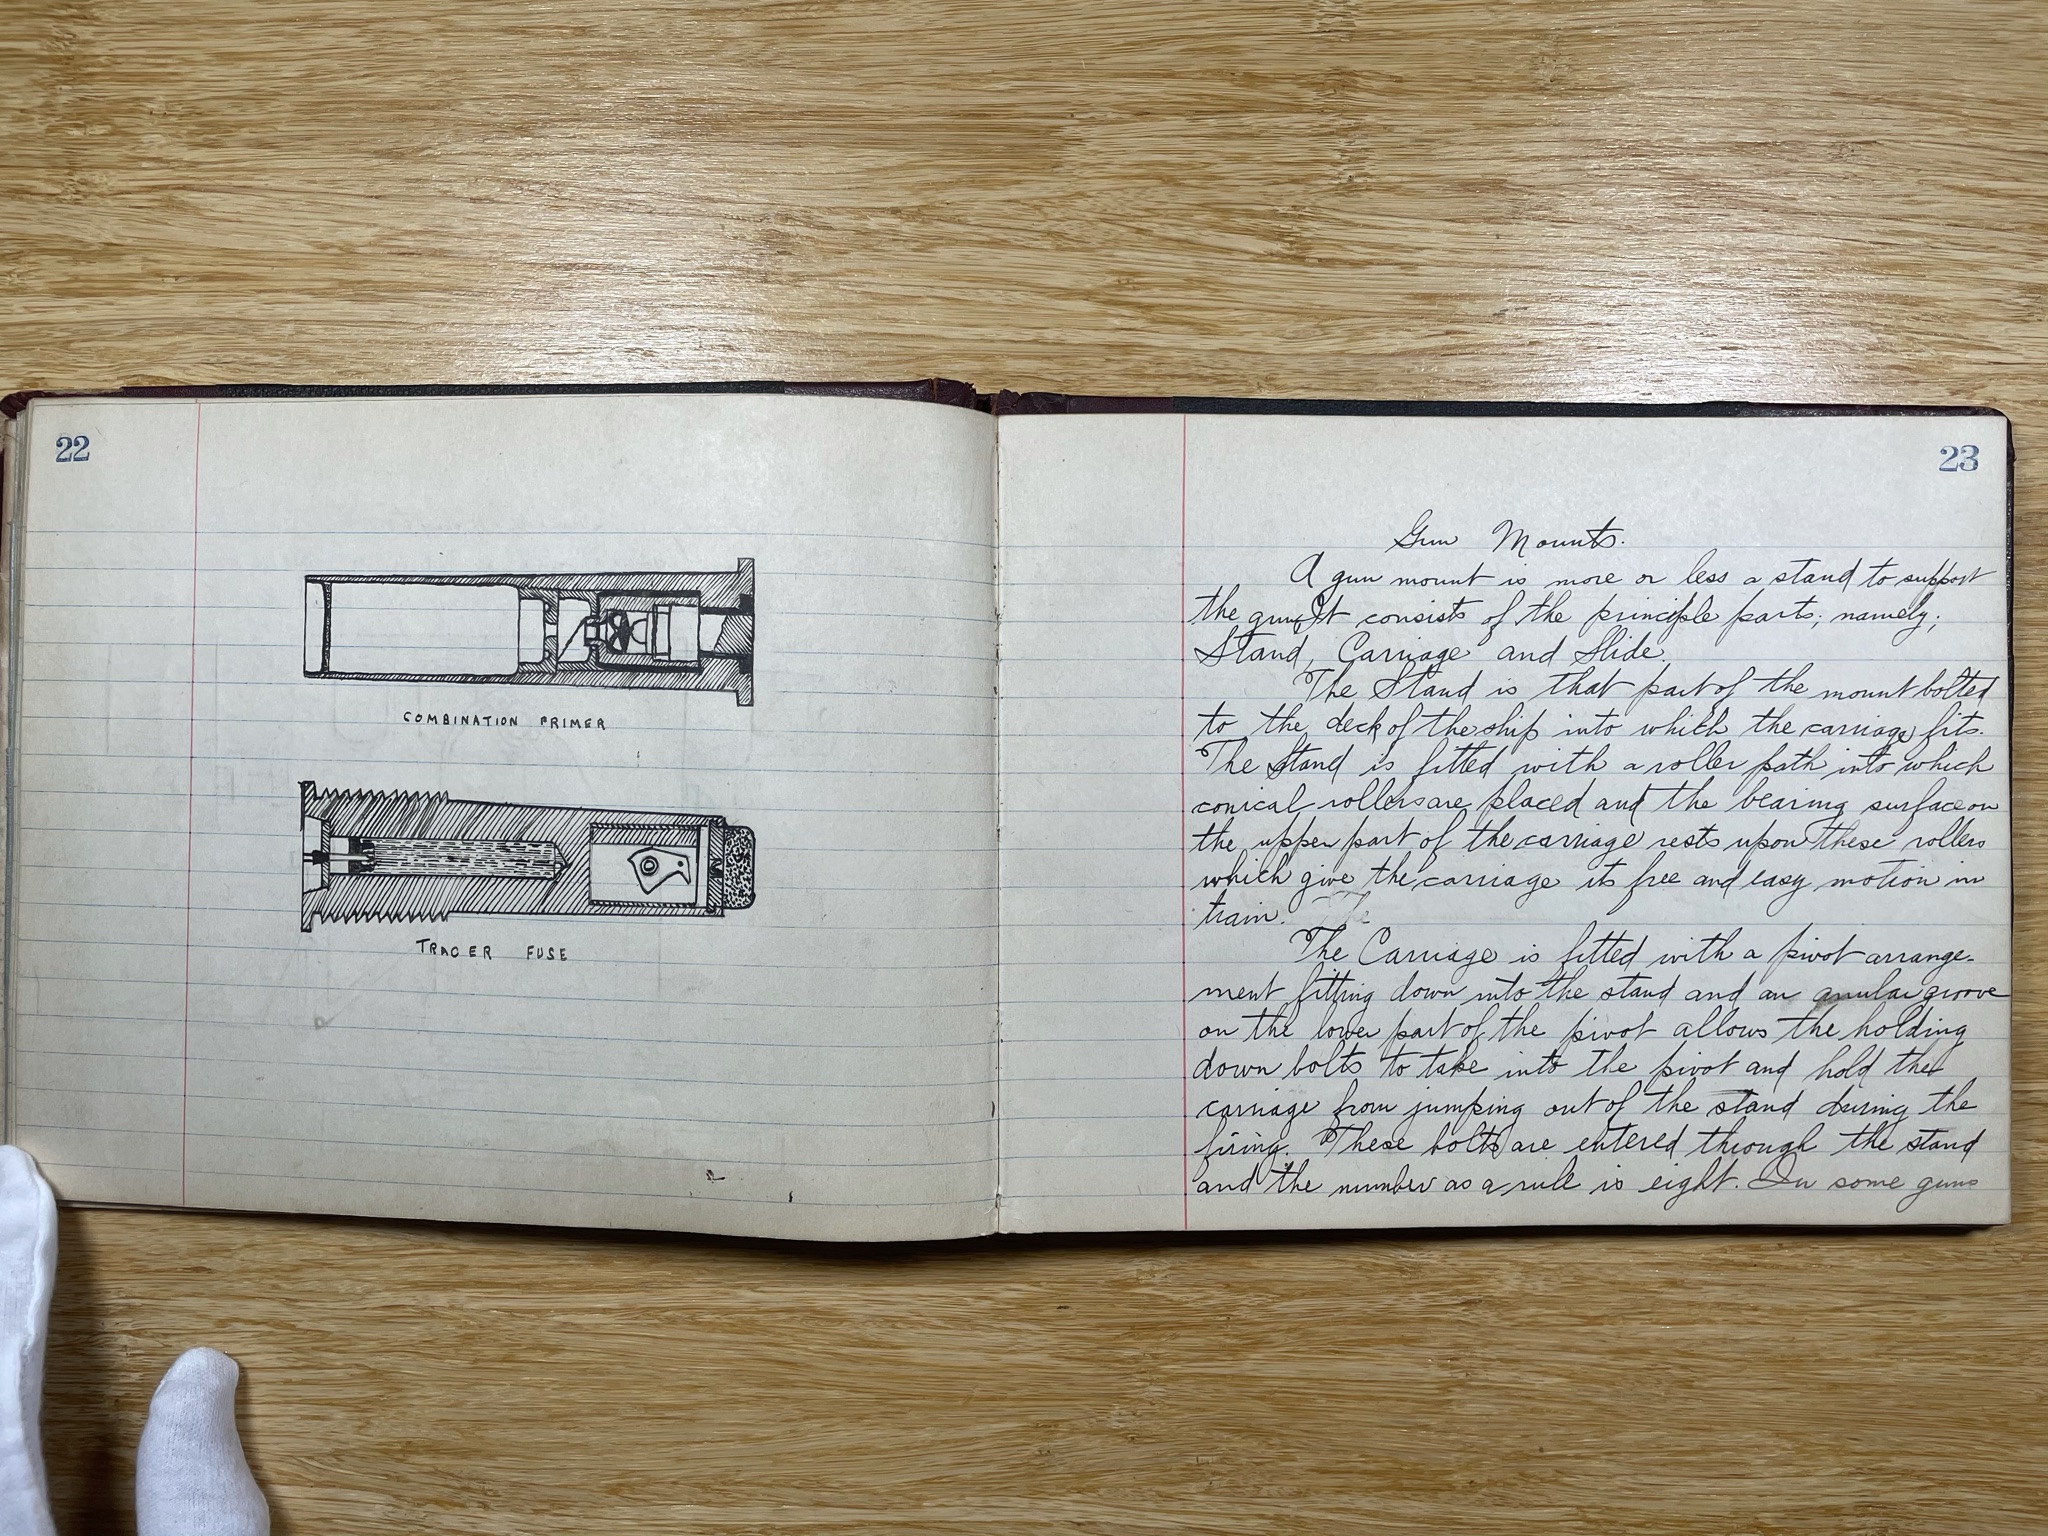 22
COMBINATION PRIMER
TRACER FUSE
23
Gun Mounts.
A gun mount is more or less a stand to support
the gun. It consists of the principle parts; namely;
Stand, Carriage and Slide.
The Stand is that part of the mount bolted
to the deck of the ship into which the carriage fits.
The Stand is fitted with a roller path into which
conical rollers are placed and the bearing surface on
the upper part of the carriage rests upon these rollers
which give the carriage its free and easy motion in
train. The
The Carriage is fitted with a pivot arrange-
ment fitting down into the stand and an anular groove
on the lower part of the pivot allows the holding
down bolts to take into the pivot and hold the
carriage from jumping out of the stand during the
firing. These bolts are entered through the stand
and the number as a rule is eight. In some guns